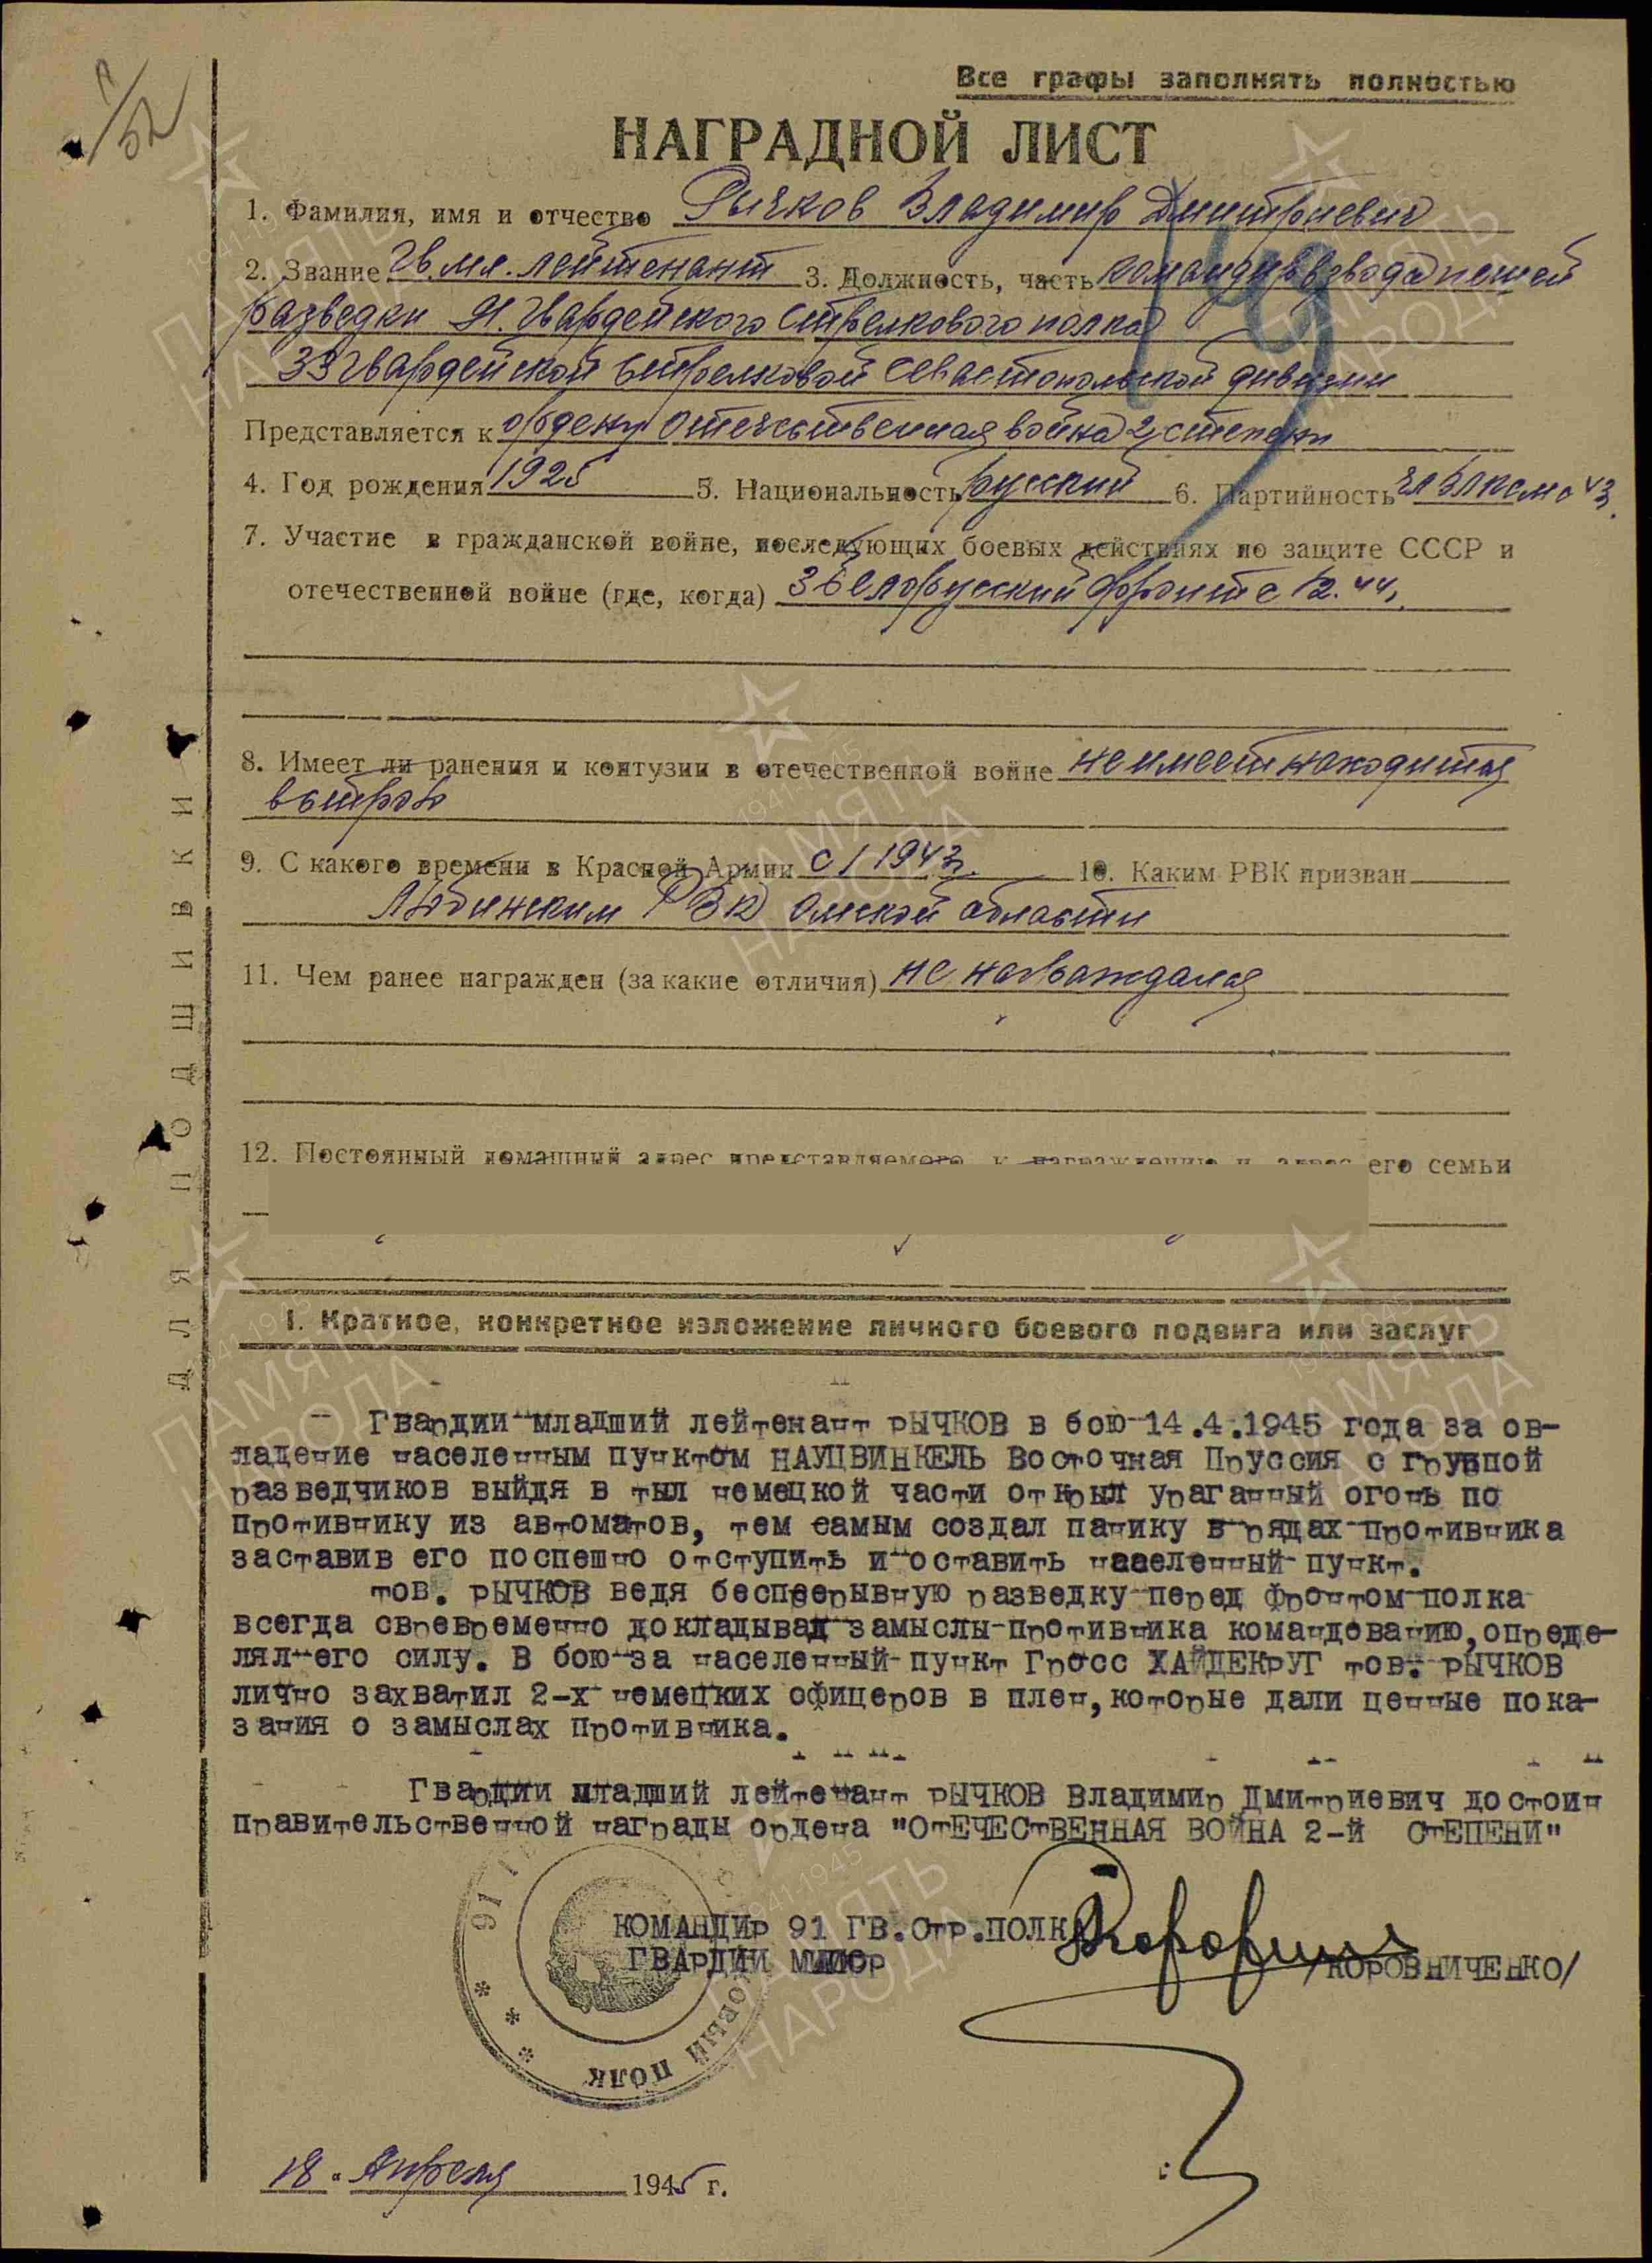 Р/52
Все графы заполнять полностью
НАГРАДНОЙ ЛИСТ
1. Фамилия, имя и отчество Рычков Владимир Дмитриевич
19
2. Звание гв. мл. лейтенант 3. Должность, часть командир взвода пешей
разведки 91. гвардейского стрелкового полка
33 гвардейской стрелковой севастопольской дивизии
Представляется к ордену отечественная война 2 степени
4. Год рождения 1925 5. Национальность русский 6. Партийность чл ВЛКСМ с 43.
7. Участие в гражданской войне, последующих боевых действиях по защите СССР и
отечественной войне (где, когда) 3 Белорусский фронт с 12.44.
8. Имеет ли ранения и контузии в отечественной войне не имеет находится
в строю
9. С какого времени в Красной Армии с 1 1943 г. 10. Каким РВК призван
Любинским РВК Омской области
11. Чем ранее награжден (за какие отличия) не награждался
12. Постоянный домашний адрес представляемого к награждению и адрес его семьи
ДЛЯ ПОДШИВКИ
I. Краткое, конкретное изложение личного боевого подвига или заслуг
Гвардии младший лейтенант РЫЧКОВ в бою 14.4.1945 года за ов-
ладение населенным пунктом НАУЦВИНКЕЛЬ Восточная Пруссия с группой
разведчиков выйдя в тыл немецкой части открыл ураганный огонь по
противнику из автоматов, тем самым создал панику в рядах противника
заставив его поспешно отступить и оставить населенный пункт.
тов. РЫЧКОВ ведя беспрерывную разведку перед фронтом полка
всегда своевременно докладывал замыслы противника командованию, опреде-
лял его силу. В бою за населенный пункт Гросс ХАЙДЕКРУГ тов. РЫЧКОВ
лично захватил 2-х немецких офицеров в плен, которые дали ценные пока-
зания о замыслах противника.
Гвардии младший лейтенант РЫЧКОВ Владимир Дмитриевич достоин
правительственной награды ордена "ОТЕЧЕСТВЕННАЯ ВОЙНА 2-й СТЕПЕНИ"
КОМАНДИР 91 ГВ.СТР.ПОЛКА
ГВАРДИИ МАЙОР /КОРОВНИЧЕНКО/
91 ПОЛК
18 " Апреля 1945 г.
1941-1945
ПАМЯТЬ
НАРОДА